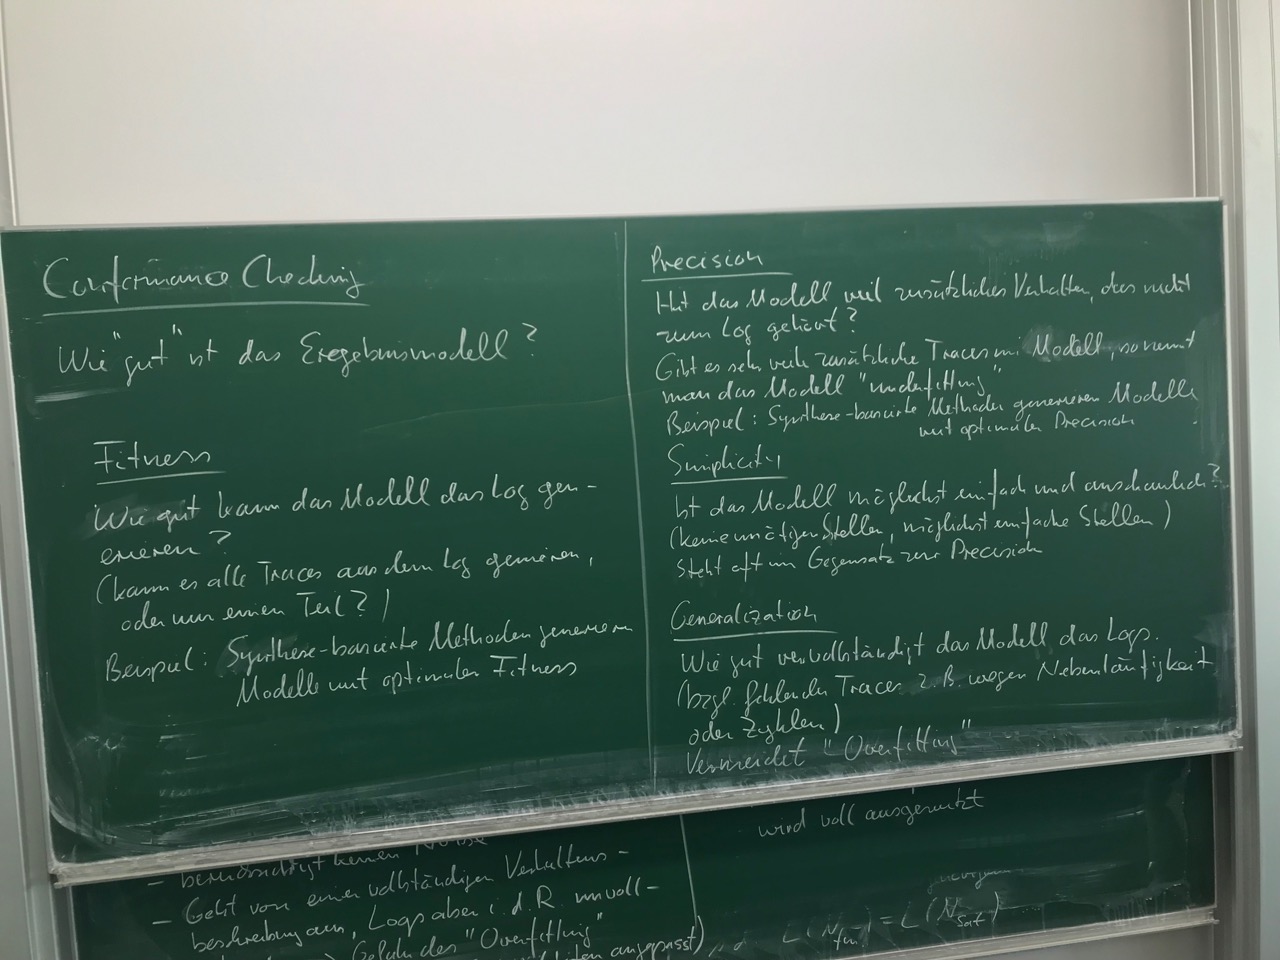 Conformance Checking
Wie "gut" ist das Ergebnismodell?
Fitness
Wie gut kann das Modell das Log gen-
erieren?
(kann es alle Traces aus dem Log generieren,
oder nur einen Teil?)
Beispiel: Synthese-basierte Methoden generieren
Modelle mit optimaler Fitness
Precision
Hat das Modell viel zusätzliches Verhalten, das nicht
zum Log gehört?
Gibt es sehr viele zusätzliche Traces im Modell, so nennt
man das Modell "underfitting"
Beispiel: Synthese-basierte Methoden generieren Modelle
mit optimaler Precision
Simplicity
Ist das Modell möglichst einfach und anschaulich?
(keine unnötigen Stellen, möglichst einfache Stellen)
Steht oft im Gegensatz zur Precision
Generalization
Wie gut vervollständigt das Modell das Log.
(bzgl. fehlender Traces z.B. wegen Nebenläufigkeit
oder Zyklen)
Vermeidet "Overfitting"
- berücksichtigt keinen Noise
- Geht von einer vollständigen Verhaltens-
beschreibung aus, Logs aber i.d.R. unvoll-
Gefahr des "Overfitting"
angepasst)
wird voll ausgenutzt
L(N fin) = L(N sat)